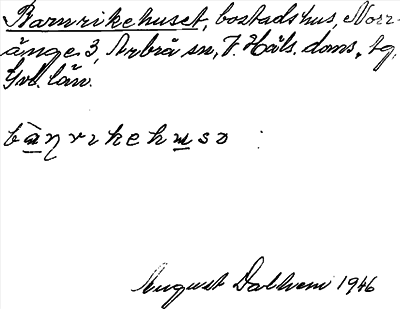 Barnrikehuset, bostadshus, Norr-
änge 3, Arbrå sn, V. Häls. doms. tg,
Gvl. län.
bàηrıkehusɔ
August Dalhem 1946